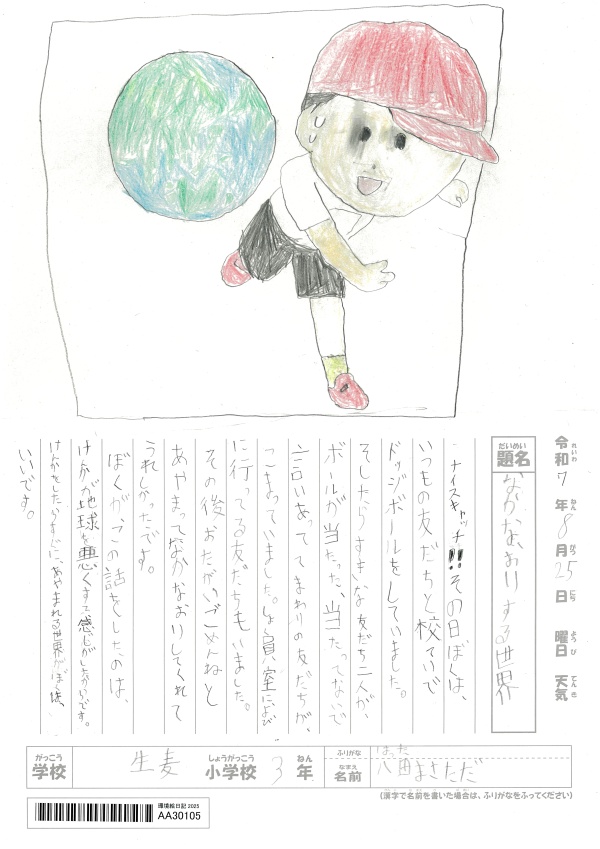 令和7年8月25日 曜日 天気
れいわ ねん がつ にち ようび てんき
だいめい
題名
なかなおりする世界
ナイスキャッチ!!その日ぼくは、
いつもの友だちと校ていで
ドッジボールをしていました。
そしたらすきな友だち二人が、
ボールが当たった、当たってないで
言いあっててまわりの友だちが、
こまっていました。しょく員室によび
に行ってる友だちもいました。
その後、おたがいごめんねと
あやまってなかなおりしてくれて
うれしかったです。
ぼくが、この話をしたのは、
けんかが地球を悪くする感じがしたからです。
けんかをしたらすぐに、あやまれる世界がぼくは、
いいです。
がっこう しょうがっこう ねん
学校 生麦 小学校 3年
ふりがな はった
なまえ
名前 八田まさただ
(漢字で名前を書いた場合は、ふりがなをふってください)
環境絵日記 2025
AA30105